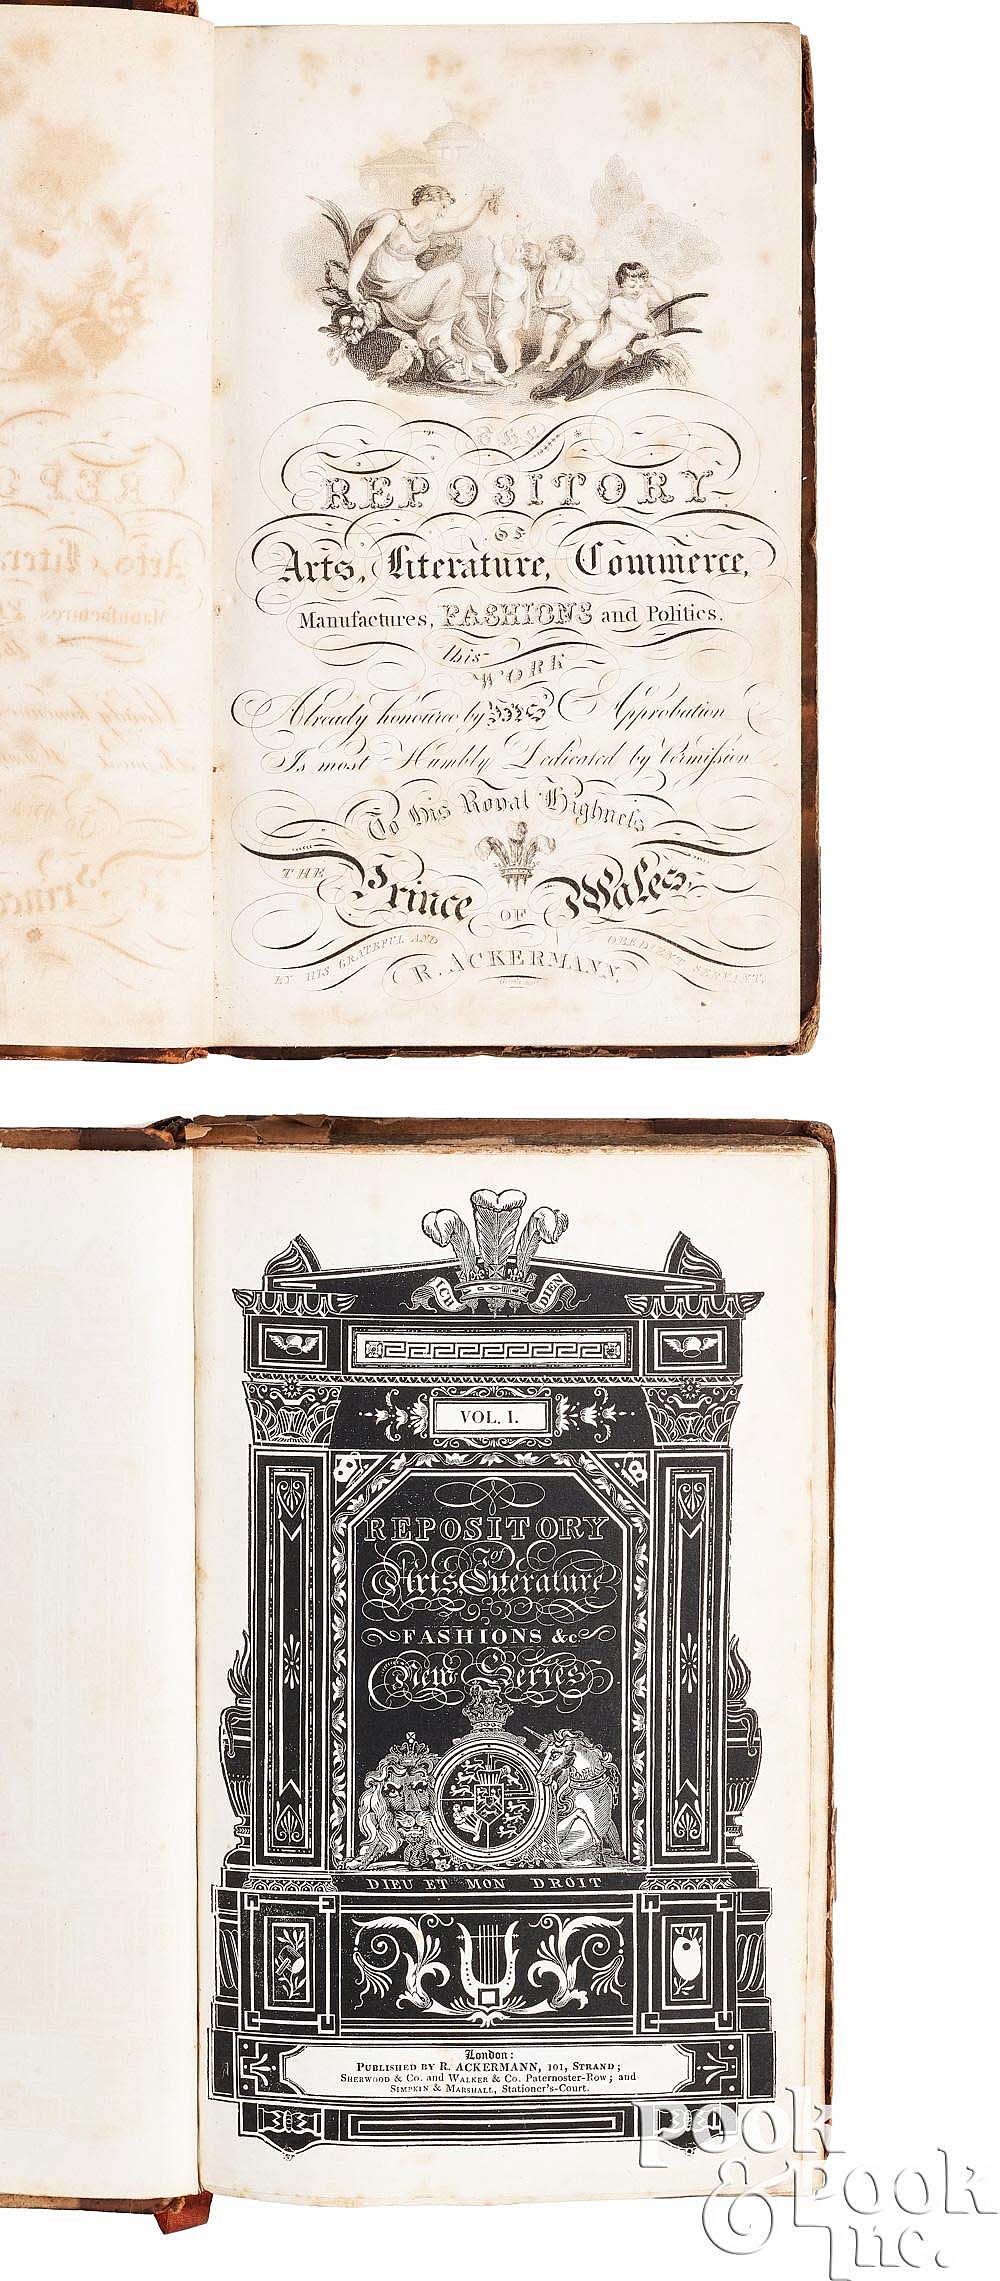 THE
REPOSITORY
OF
Arts, Literature, Commerce,
Manufactures, FASHIONS and Politics.
this
WORK
Already honoured by HIS Approbation
Is most Humbly Dedicated by Permiſsion
To His Royal Highneſs
THE Prince OF Wales,
BY HIS GRATEFUL AND OBEDIENT SERVANT,
R. ACKERMANN.
ICH DIEN
VOL. I.
REPOSITORY
of
Arts, Literature
FASHIONS &c.
New Series
DIEU ET MON DROIT
London:
PUBLISHED BY R. ACKERMANN, 101, STRAND;
SHERWOOD & CO. and WALKER & CO. Paternoster-Row; and
SIMPKIN & MARSHALL, Stationer's-Court.
Pook
& Pook
Inc.